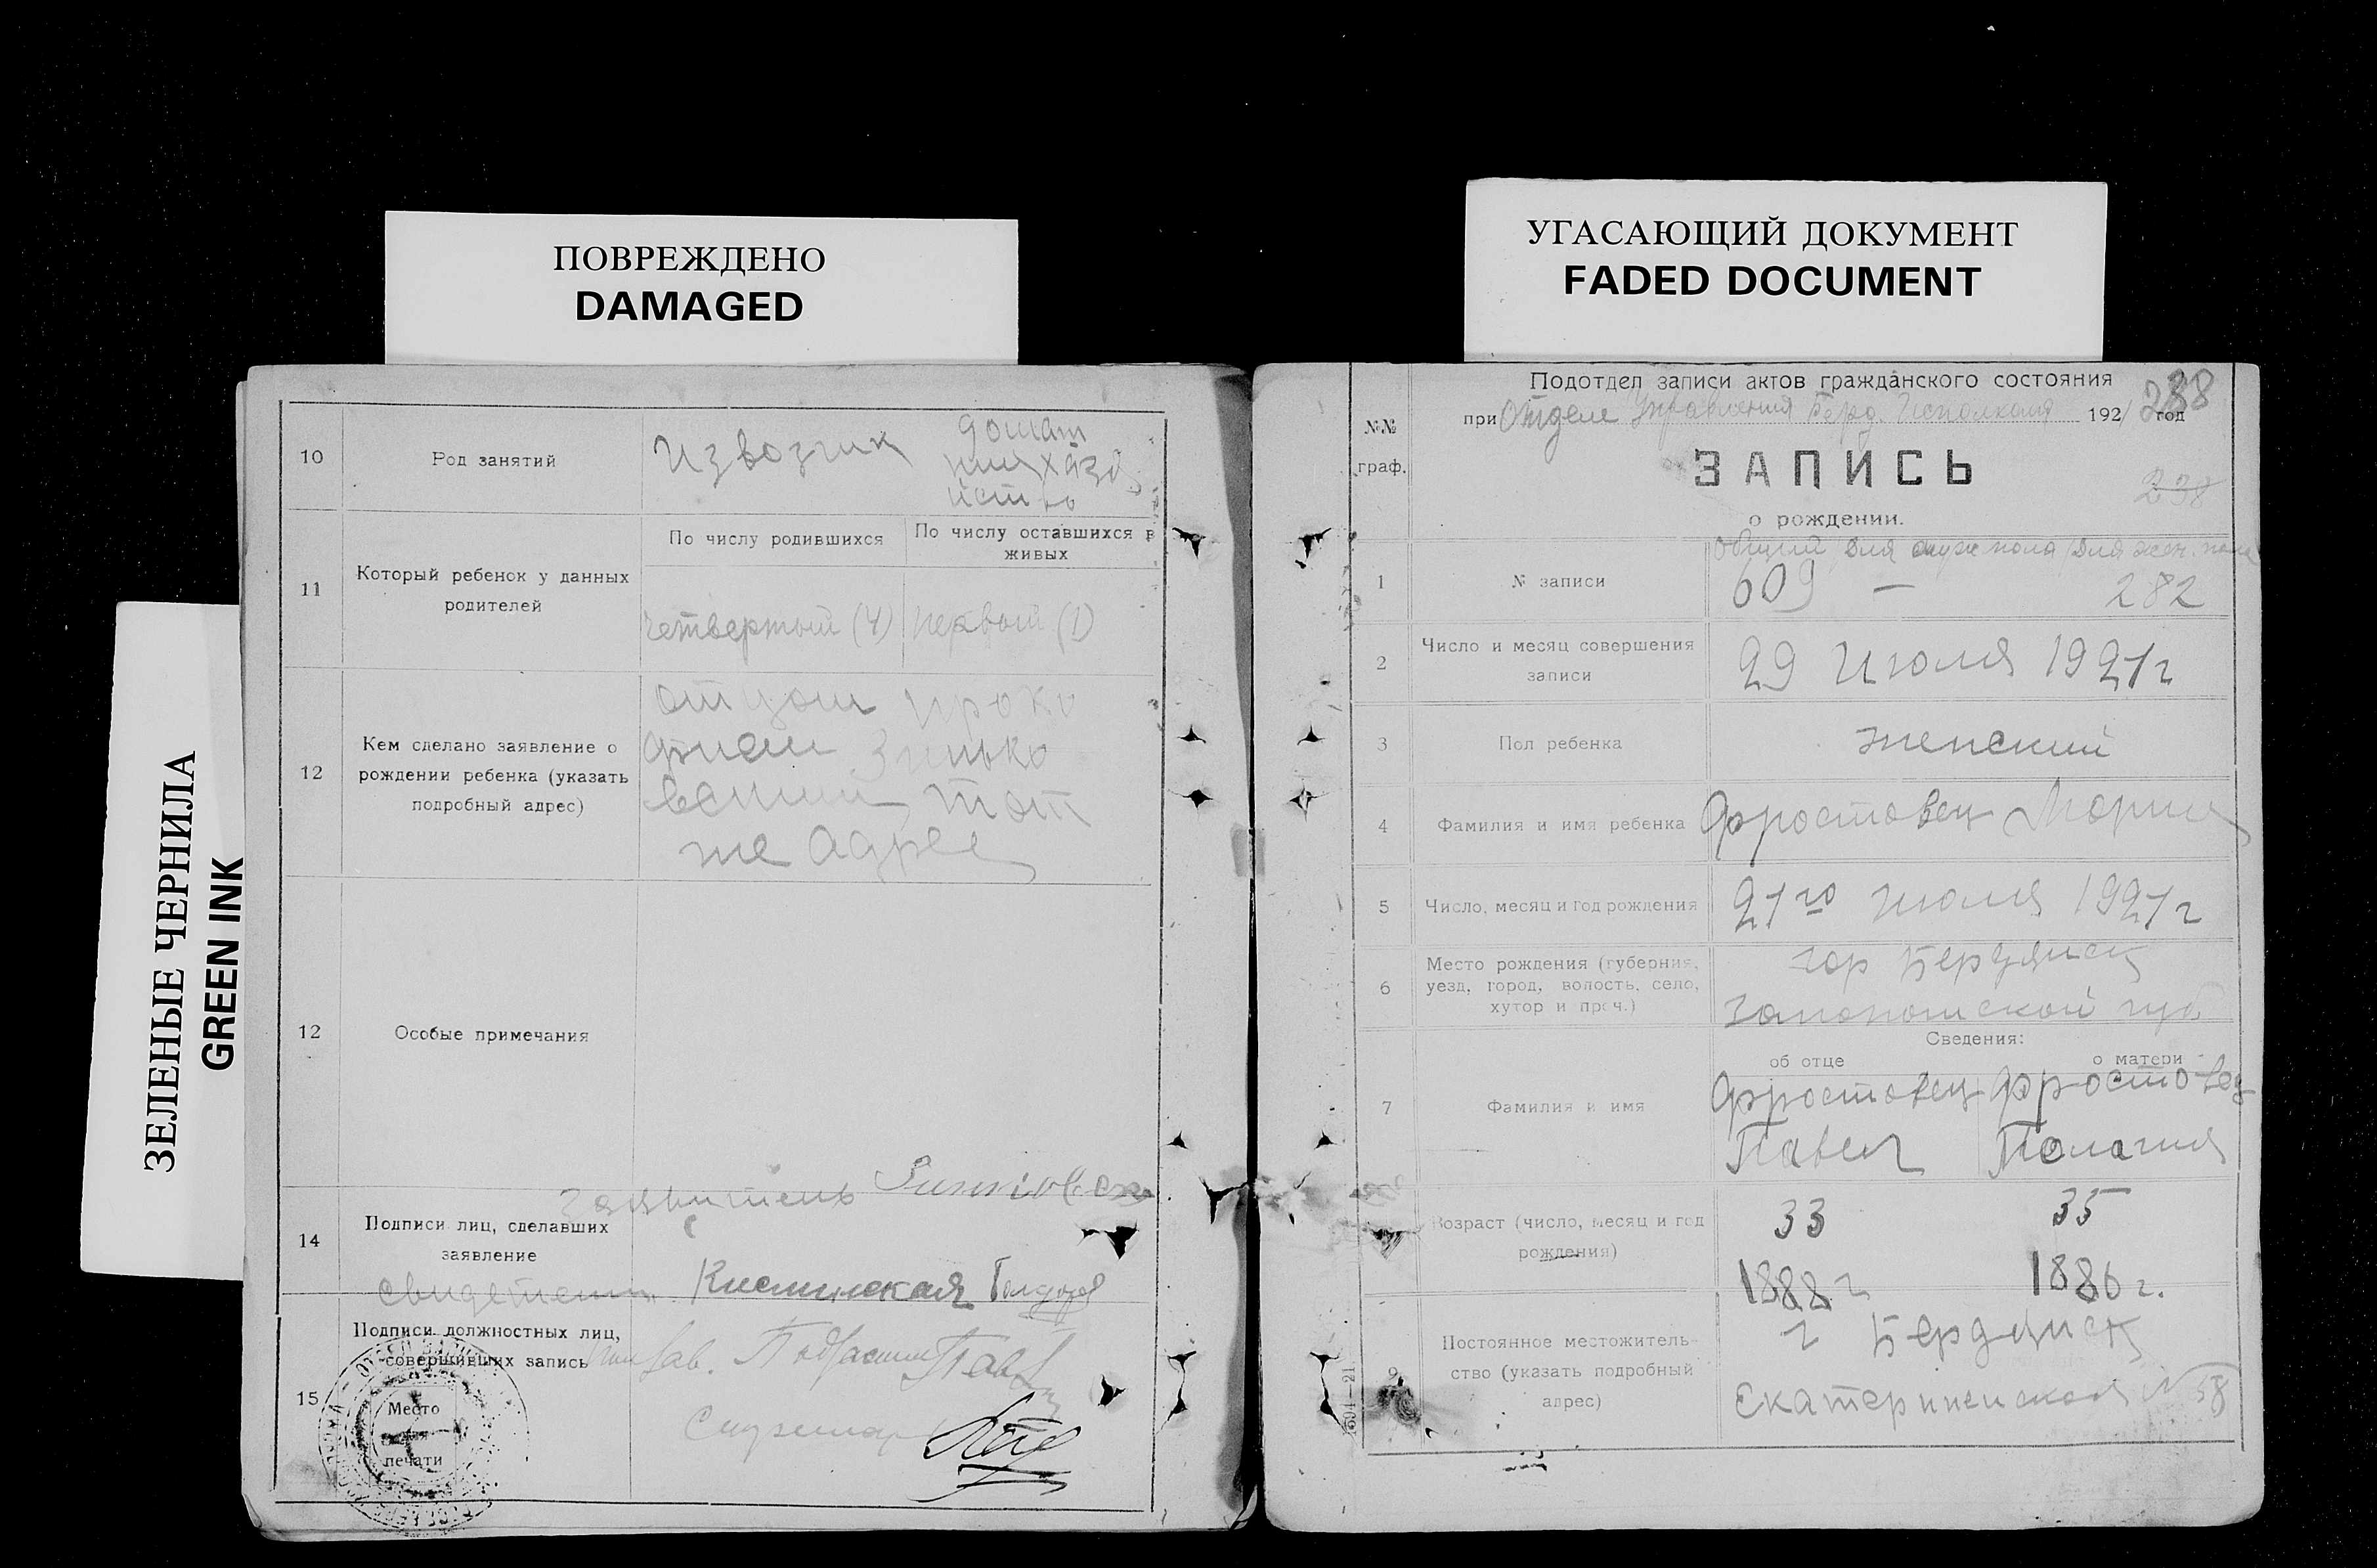 ПОВРЕЖДЕНО
DAMAGED
ЗЕЛЕНЫЕ ЧЕРНИЛА
GREEN INK
10
Род занятий
Извозчик
11
Который ребенок у данных
родителей
По числу родившихся
По числу оставшихся в
живых
четвертый (4)
первый (1)
12
Кем сделано заявление о
рождении ребенка (указать
подробный адрес)
отцом Проко
фием Зинько
вским, тот
же адрес
12
Особые примечания
14
Подписи лиц, сделавших
заявление
заявитель
свидетели
15
Подписи должностных лиц,
совершивших запись
Место
печати
УГАСАЮЩИЙ ДОКУМЕНТ
FADED DOCUMENT
Подотдел записи актов гражданского состояния
при Отделе Управления Берд. Исполкома 1921 год
288
№№
граф.
ЗАПИСЬ
238
о рождении.
1
№ записи
Общий для муж пола для жен. пола
609 — 282
2
Число и месяц совершения
записи
29 Июля 1921 г
3
Пол ребенка
женский
4
Фамилия и имя ребенка
Фростовец Мория
5
Число, месяц и год рождения
21го июля 1921 г
6
Место рождения (губерния,
уезд, город, волость, село,
хутор и проч.)
гор Бердянск
губ
Сведения:
об отце
о матери
7
Фамилия и имя
Фростовец
Павел
Фростовец
Пология
Возраст (число, месяц и год
рождения)
33
1888 г
35
1886 г.
9
Постоянное местожитель-
ство (указать подробный
адрес)
г Бердянск
Екатерининская № 58